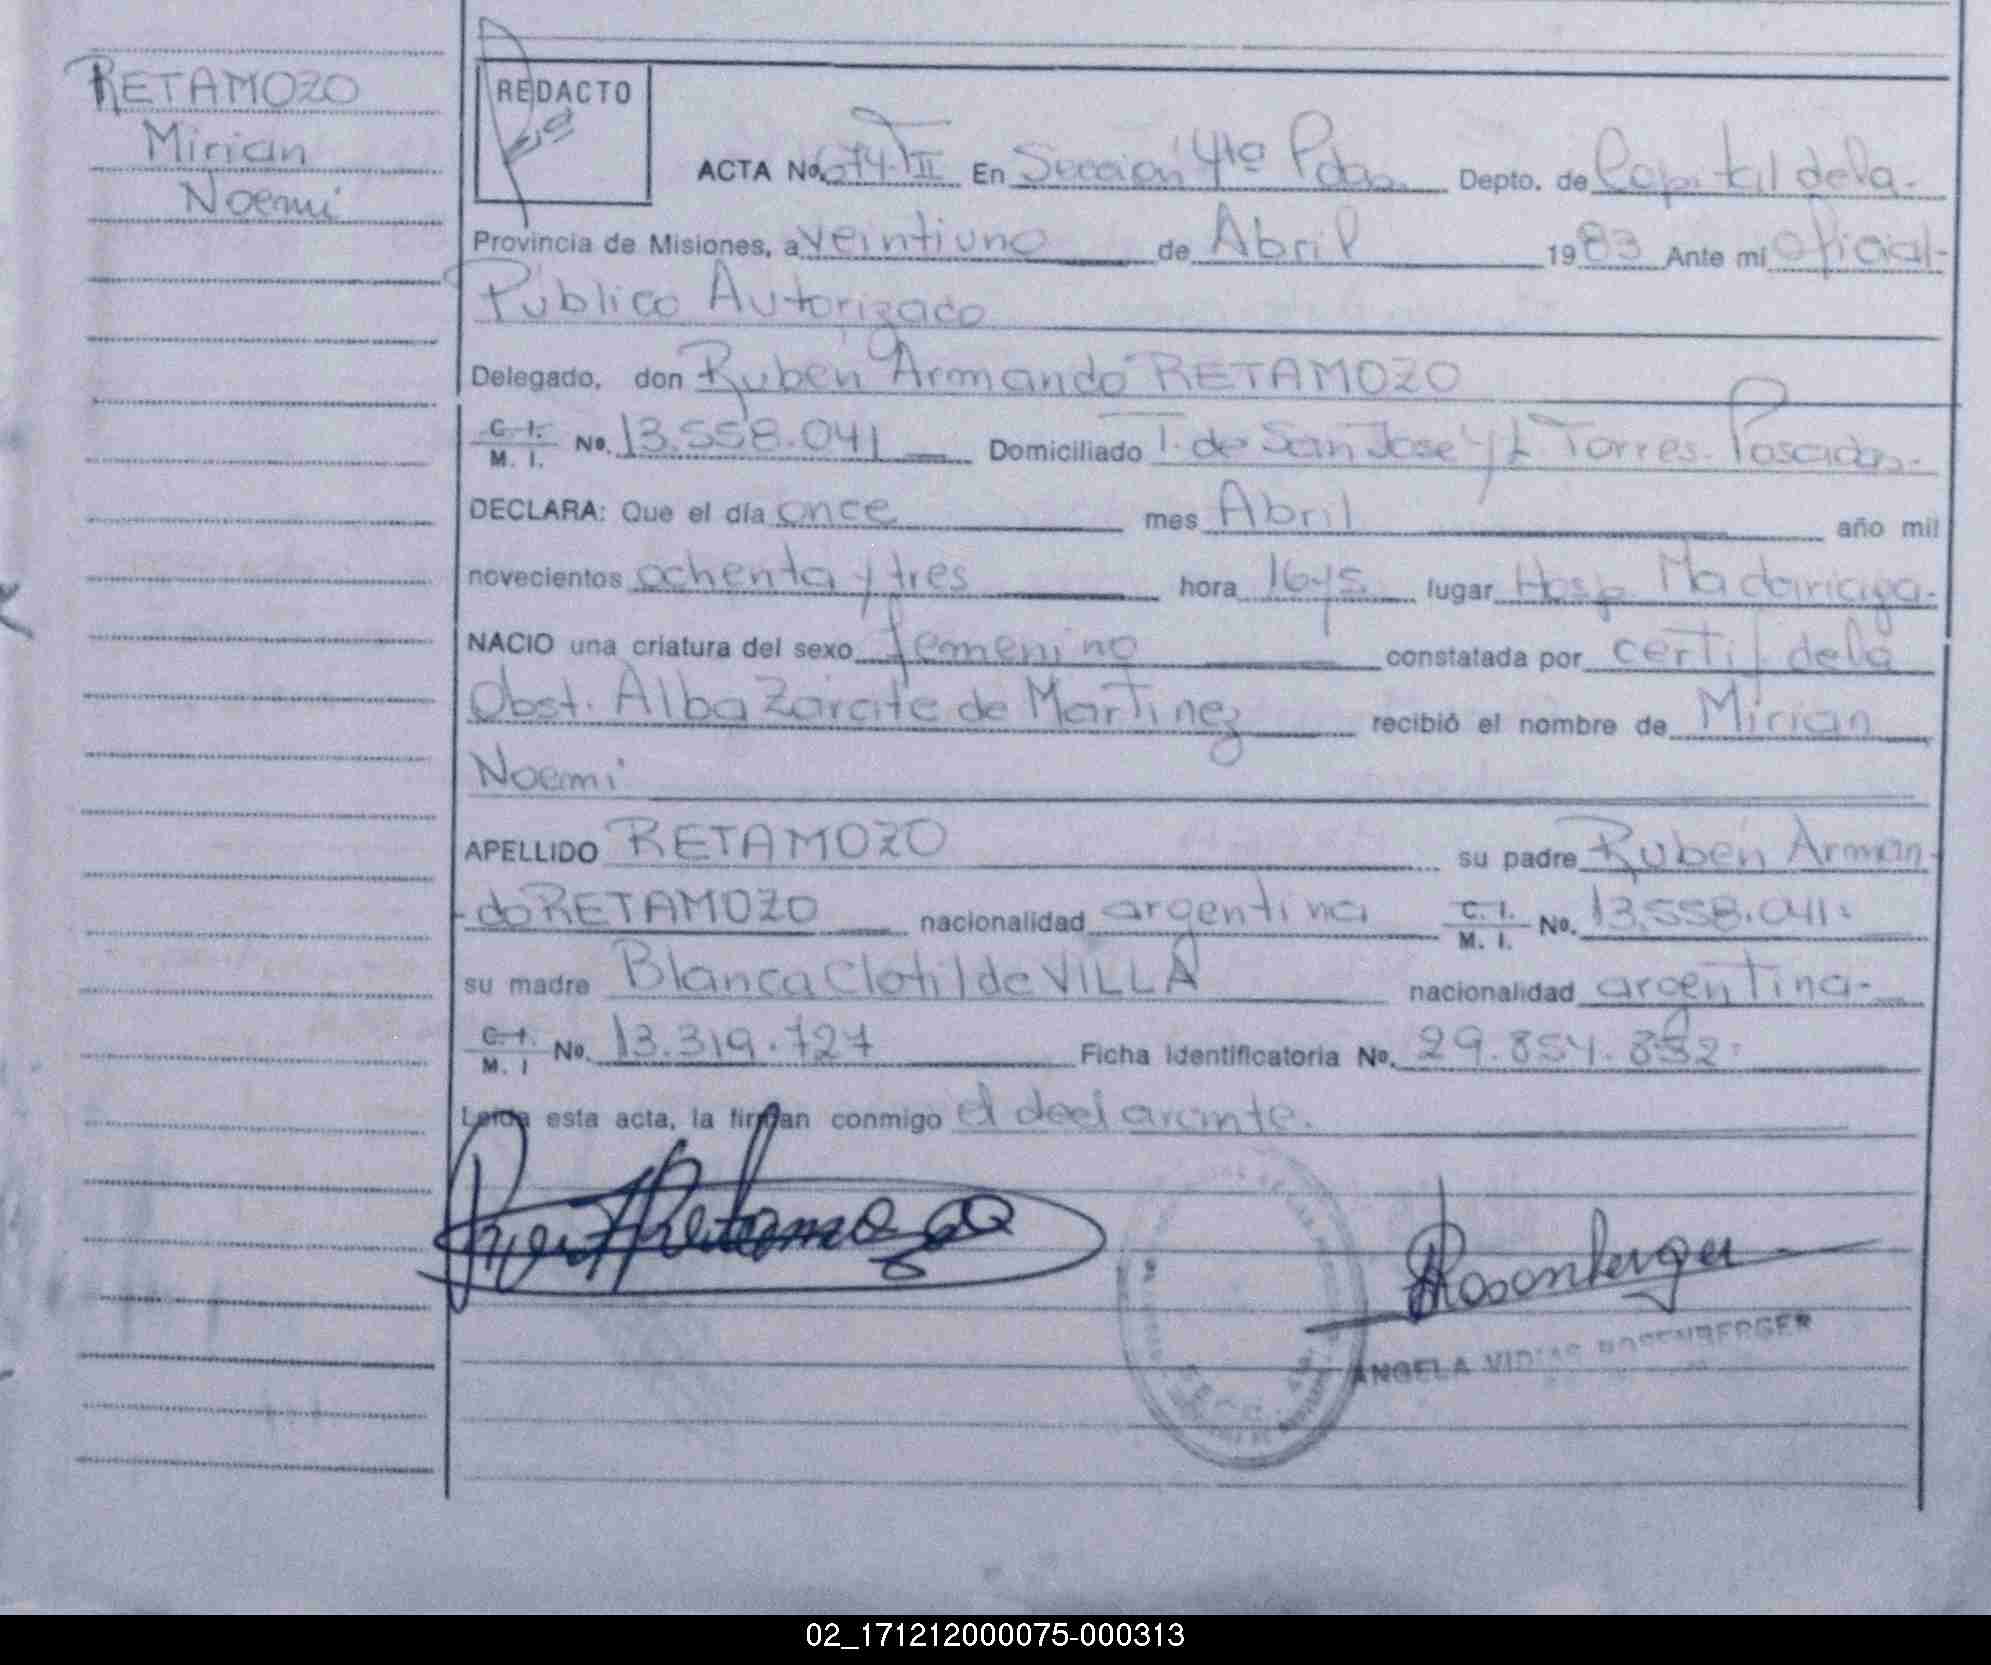 RETAMOZO
Mirian
Noemi
REDACTO
ACTA No. 674-TII En Sección 4ta Pdas. Depto. de Capital dela-
Provincia de Misiones, a veintiuno de Abril 1983 Ante mi oficial-
Público Autorizado
Delegado, don Rubén Armando RETAMOZO
C. I. M. I. No. 13.558.041 Domiciliado T. de San José y L Torres. Posadas.-
DECLARA: Que el día once mes Abril año mil
novecientos ochenta y tres hora 16y5 lugar Hosp. Madariaga.
NACIO una criatura del sexo femenino constatada por certif dela
Obst. Alba Zárate de Martinez recibió el nombre de Mirian
Noemi
APELLIDO RETAMOZO su padre Rubén Arman-
-do RETAMOZO nacionalidad argentina C. I. M. I. No. 13.558.041.
su madre Blanca Clotilde VILLA nacionalidad argentina-
C. I. M. I No. 13.319.727 Ficha Identificatoria No. 29.854.832-
Leida esta acta, la firman conmigo el declarante.
Retamozo
Rosenberger
ANGELA ROSENBERGER
02_171212000075-000313